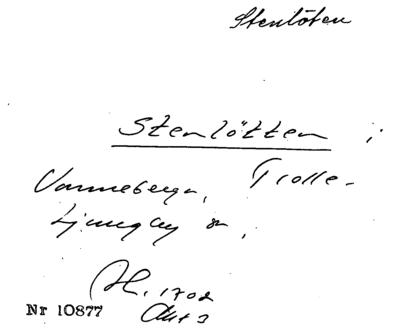 Stenlöten
Stenlötten i
Vanneberga, Trolle-
Ljungby sn,
1702
Nr 10877 Akt 3